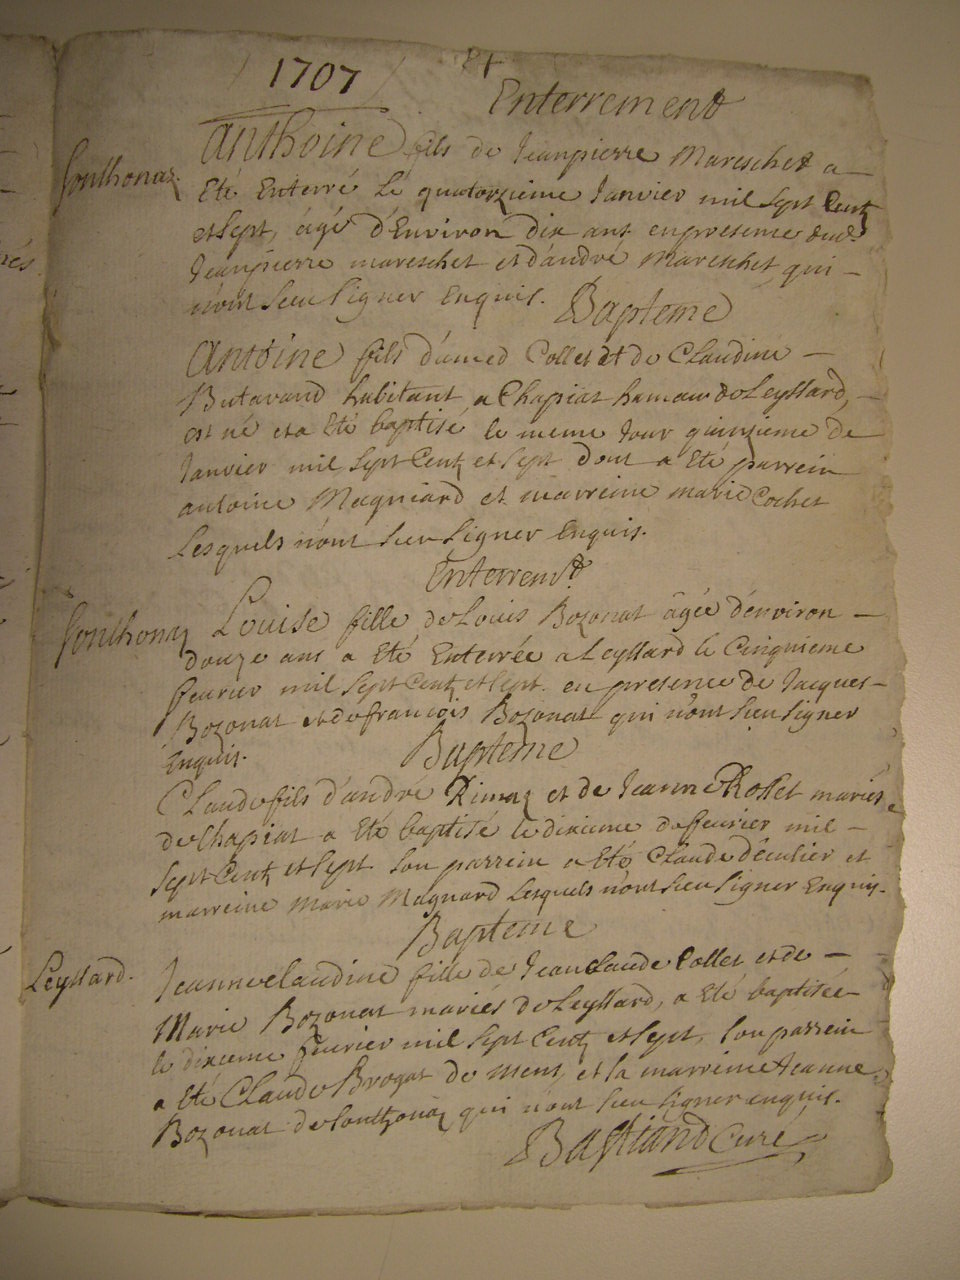 1707
Enterrement
Sonthonaz
Anthoine fils de Jeanpierre Mareschet a
Eté Enterré Le quatorzieme Janvier mil sept Centz
et sept, âgé d'Environ dix ans en presence dud.
Jeanpierre mareschet et d'andré Mareschet qui
n'ont sceu signer Enquis.
Bapteme
Antoine fils d'amed Collet et de Claudine
Butavand habitant a Chapiat hamau de Leyssard,
est né et a Eté baptisé le meme Jour quinzieme de
Janvier mil sept Centz et sept dont a Eté parrein
antoine Magniard et marreine marie Cochet
Lesquels n'ont sceu signer Enquis.
Enterremt.
Sonthonaz
Louise fille de Louis Bozonat âgée d'environ
douze ans a Eté Enterrée a Leyssard le Cinquieme
fevrier mil sept Centz et sept en presence de Jacques
Bozonat et de francois Bozonat qui n'ont sceu signer
Enquis.
Bapteme
Claude fils d'andré Rimaz et de Jeanne Rosset mariés
de Chapiat a Eté baptisé le dixieme de fevrier mil
sept Centz et sept son parrein a Eté Claude d'éculier et
marreine Marie Magnard Lesquels n'ont sceu signer Enquis.
Bapteme
Leyssard.
Jeanne claudine fille de Jean claude Collet et de
Marie Bozonat mariés de Leyssard, a Eté baptisée
le dixieme fevrier mil sept Centz et sept, son parrein
a Eté Claude Brogat de Mens, et la marreine Jeanne
Bozonat de Sonthonaz qui n'ont sceu signer enquis.
Bastiand Curé